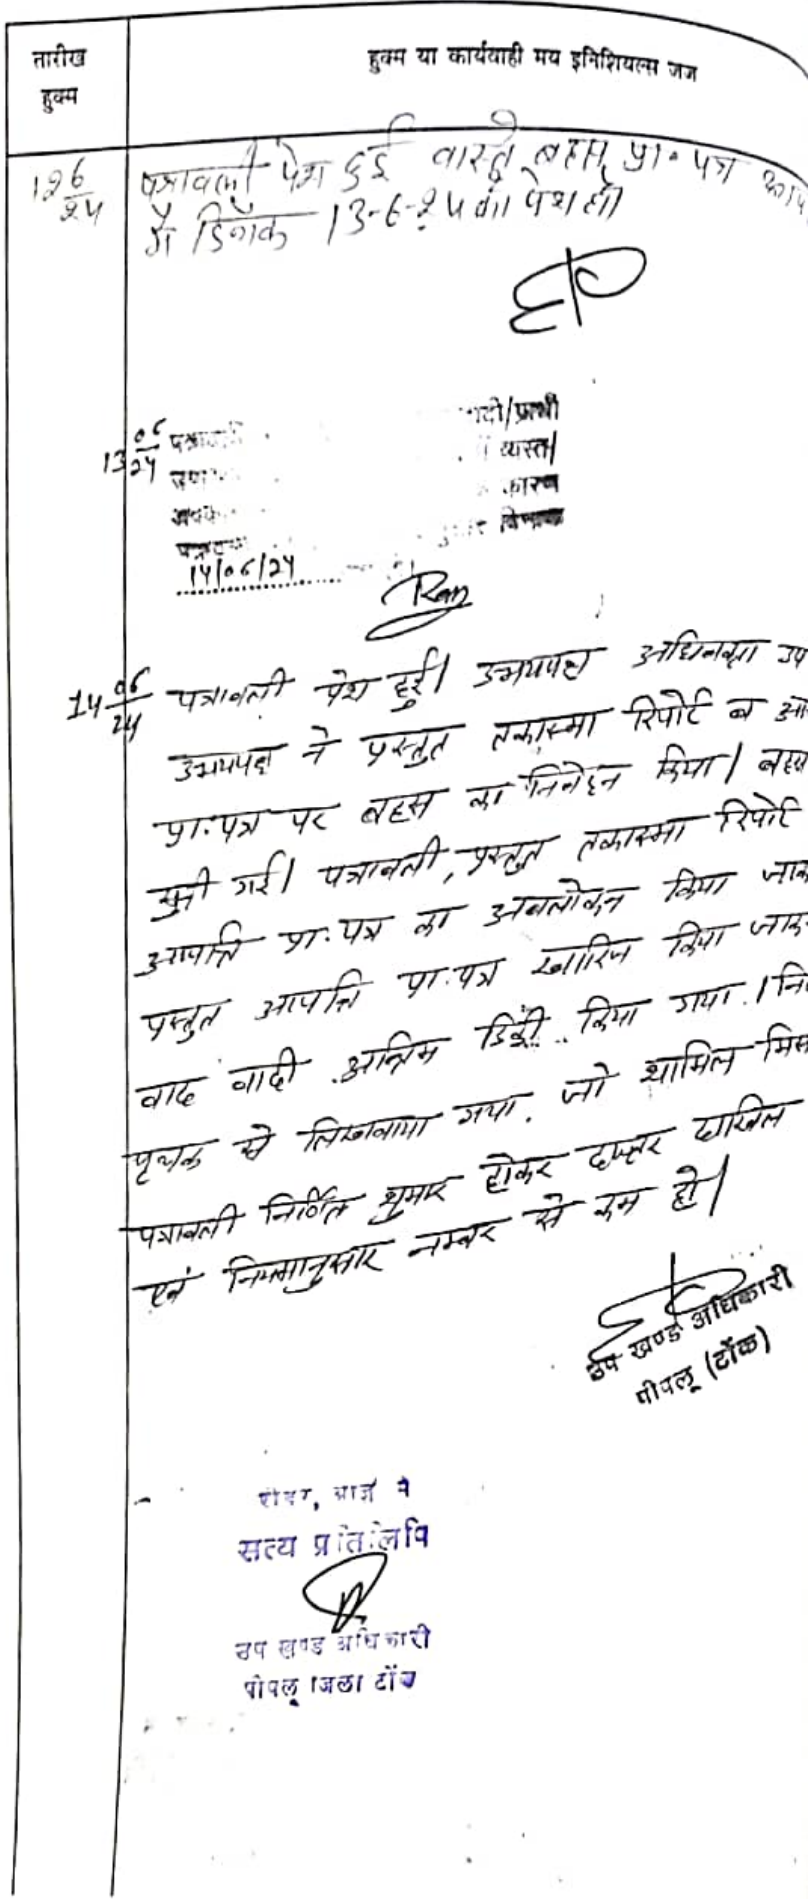 तारीख
हुक्म
हुक्म या कार्यवाही मय इनिशियल्स जज
12 6/24 पत्रावली पेश हुई वास्ते बहस प्रा. पत्र
में दिनांक 13-6-24 को पेश हो
13 06/24
दी/प्रार्थी
व्यस्त/
कारण
14/06/24
14 06/24 पत्रावली पेश हुई। उभयपक्ष अधिवक्ता उप
उभयपक्ष ने प्रस्तुत तकास्मा रिपोर्ट व आ
प्रा.पत्र पर बहस का निवेदन किया। बहस
सुनी गई। पत्रावली, प्रस्तुत तकास्मा रिपोर्ट
आपत्ति प्रा.पत्र का अवलोकन किया जाक
प्रस्तुत आपत्ति प्रा.पत्र खारिज किया जाक
वाद वादी अन्तिम डिक्री किया गया। नि
पृथक से लिखवाया गया. जो शामिल मिस
पत्रावली निर्णित शुमार होकर दफ्तर दाखिल
एवं नियमानुसार नम्बर से कम हो।
उप खण्ड अधिकारी
पीपलू (टोंक)
सत्य प्रतिलिपि
उप खण्ड अधिकारी
पीपलू जिला टोंक